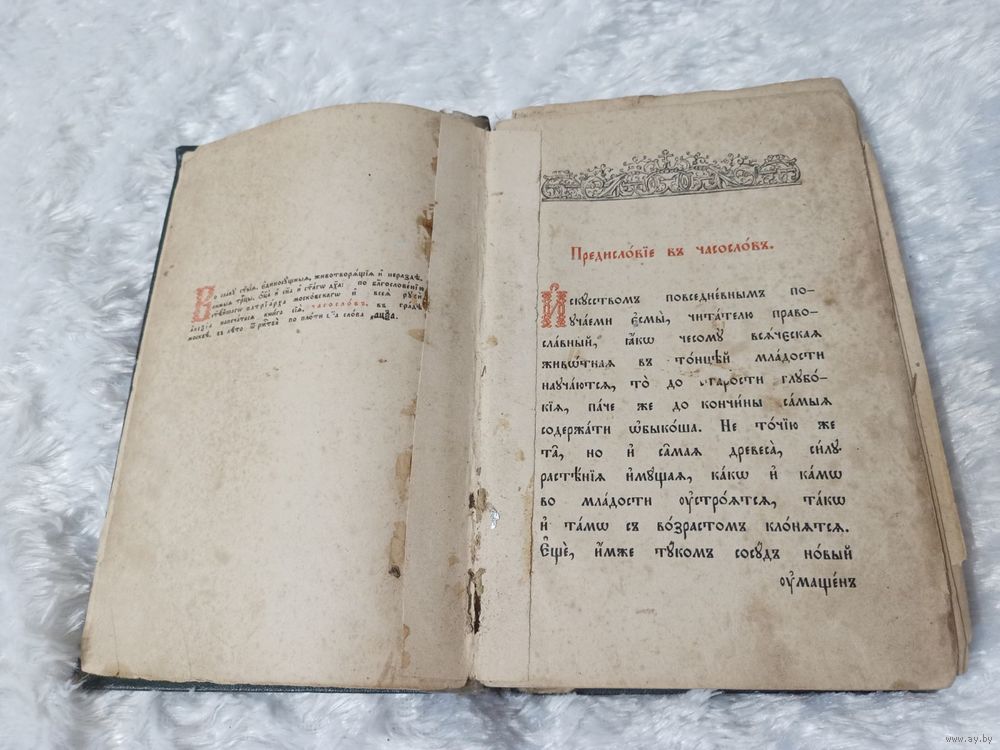 Во славу ст҃ыѧ, єдиносꙋ́щныѧ, животворѧ́щїѧ и҆ неразде́-
лимыѧ трⷪ҇цы, Ѻц҃а̀ и҆ сн҃а и҆ ст҃а́гѡ дх҃а: по благословенїю
патрїа́рха моско́вскагѡ и҆ всеѧ̀ рꙋсі́и
напеча́тасѧ кни́га сїѧ̀, часосло́въ, въ гра́дѣ
москвѣ̀, въ лѣ́то по пло́ти сло́ва
Предисло́вїе въ часосло́въ.
И҆скꙋсством повседне́вным по-
ꙋча́еми є҆смы̀, чита́телю право-
сла́вный, ꙗ҆́кѡ чесомꙋ всѧ́ческаѧ
живѡ́тнаѧ въ то́нцѣй мла́дости
наꙋча́ютсѧ, то̀ до ста́рости глꙋбо́-
кїѧ, па́че же до кончи́ны са́мыѧ
содержа́ти ѡ҆быко́ша. Не то́чїю же
та̑, но и҆ са̑маѧ древеса̀, си́лꙋ
расте́нїѧ и҆мꙋщаѧ, ка́кѡ и҆ ка́мѡ
во мла́дости ᲂу҆стро́ѧтсѧ, та́кѡ
и҆ та́мѡ съ во́зрастом клонѧ́тсѧ.
Є҆щѐ, и҆́мже тꙋ́комъ сосꙋ́дъ но́вый
ᲂу҆мащє́нъ
www.ay.by